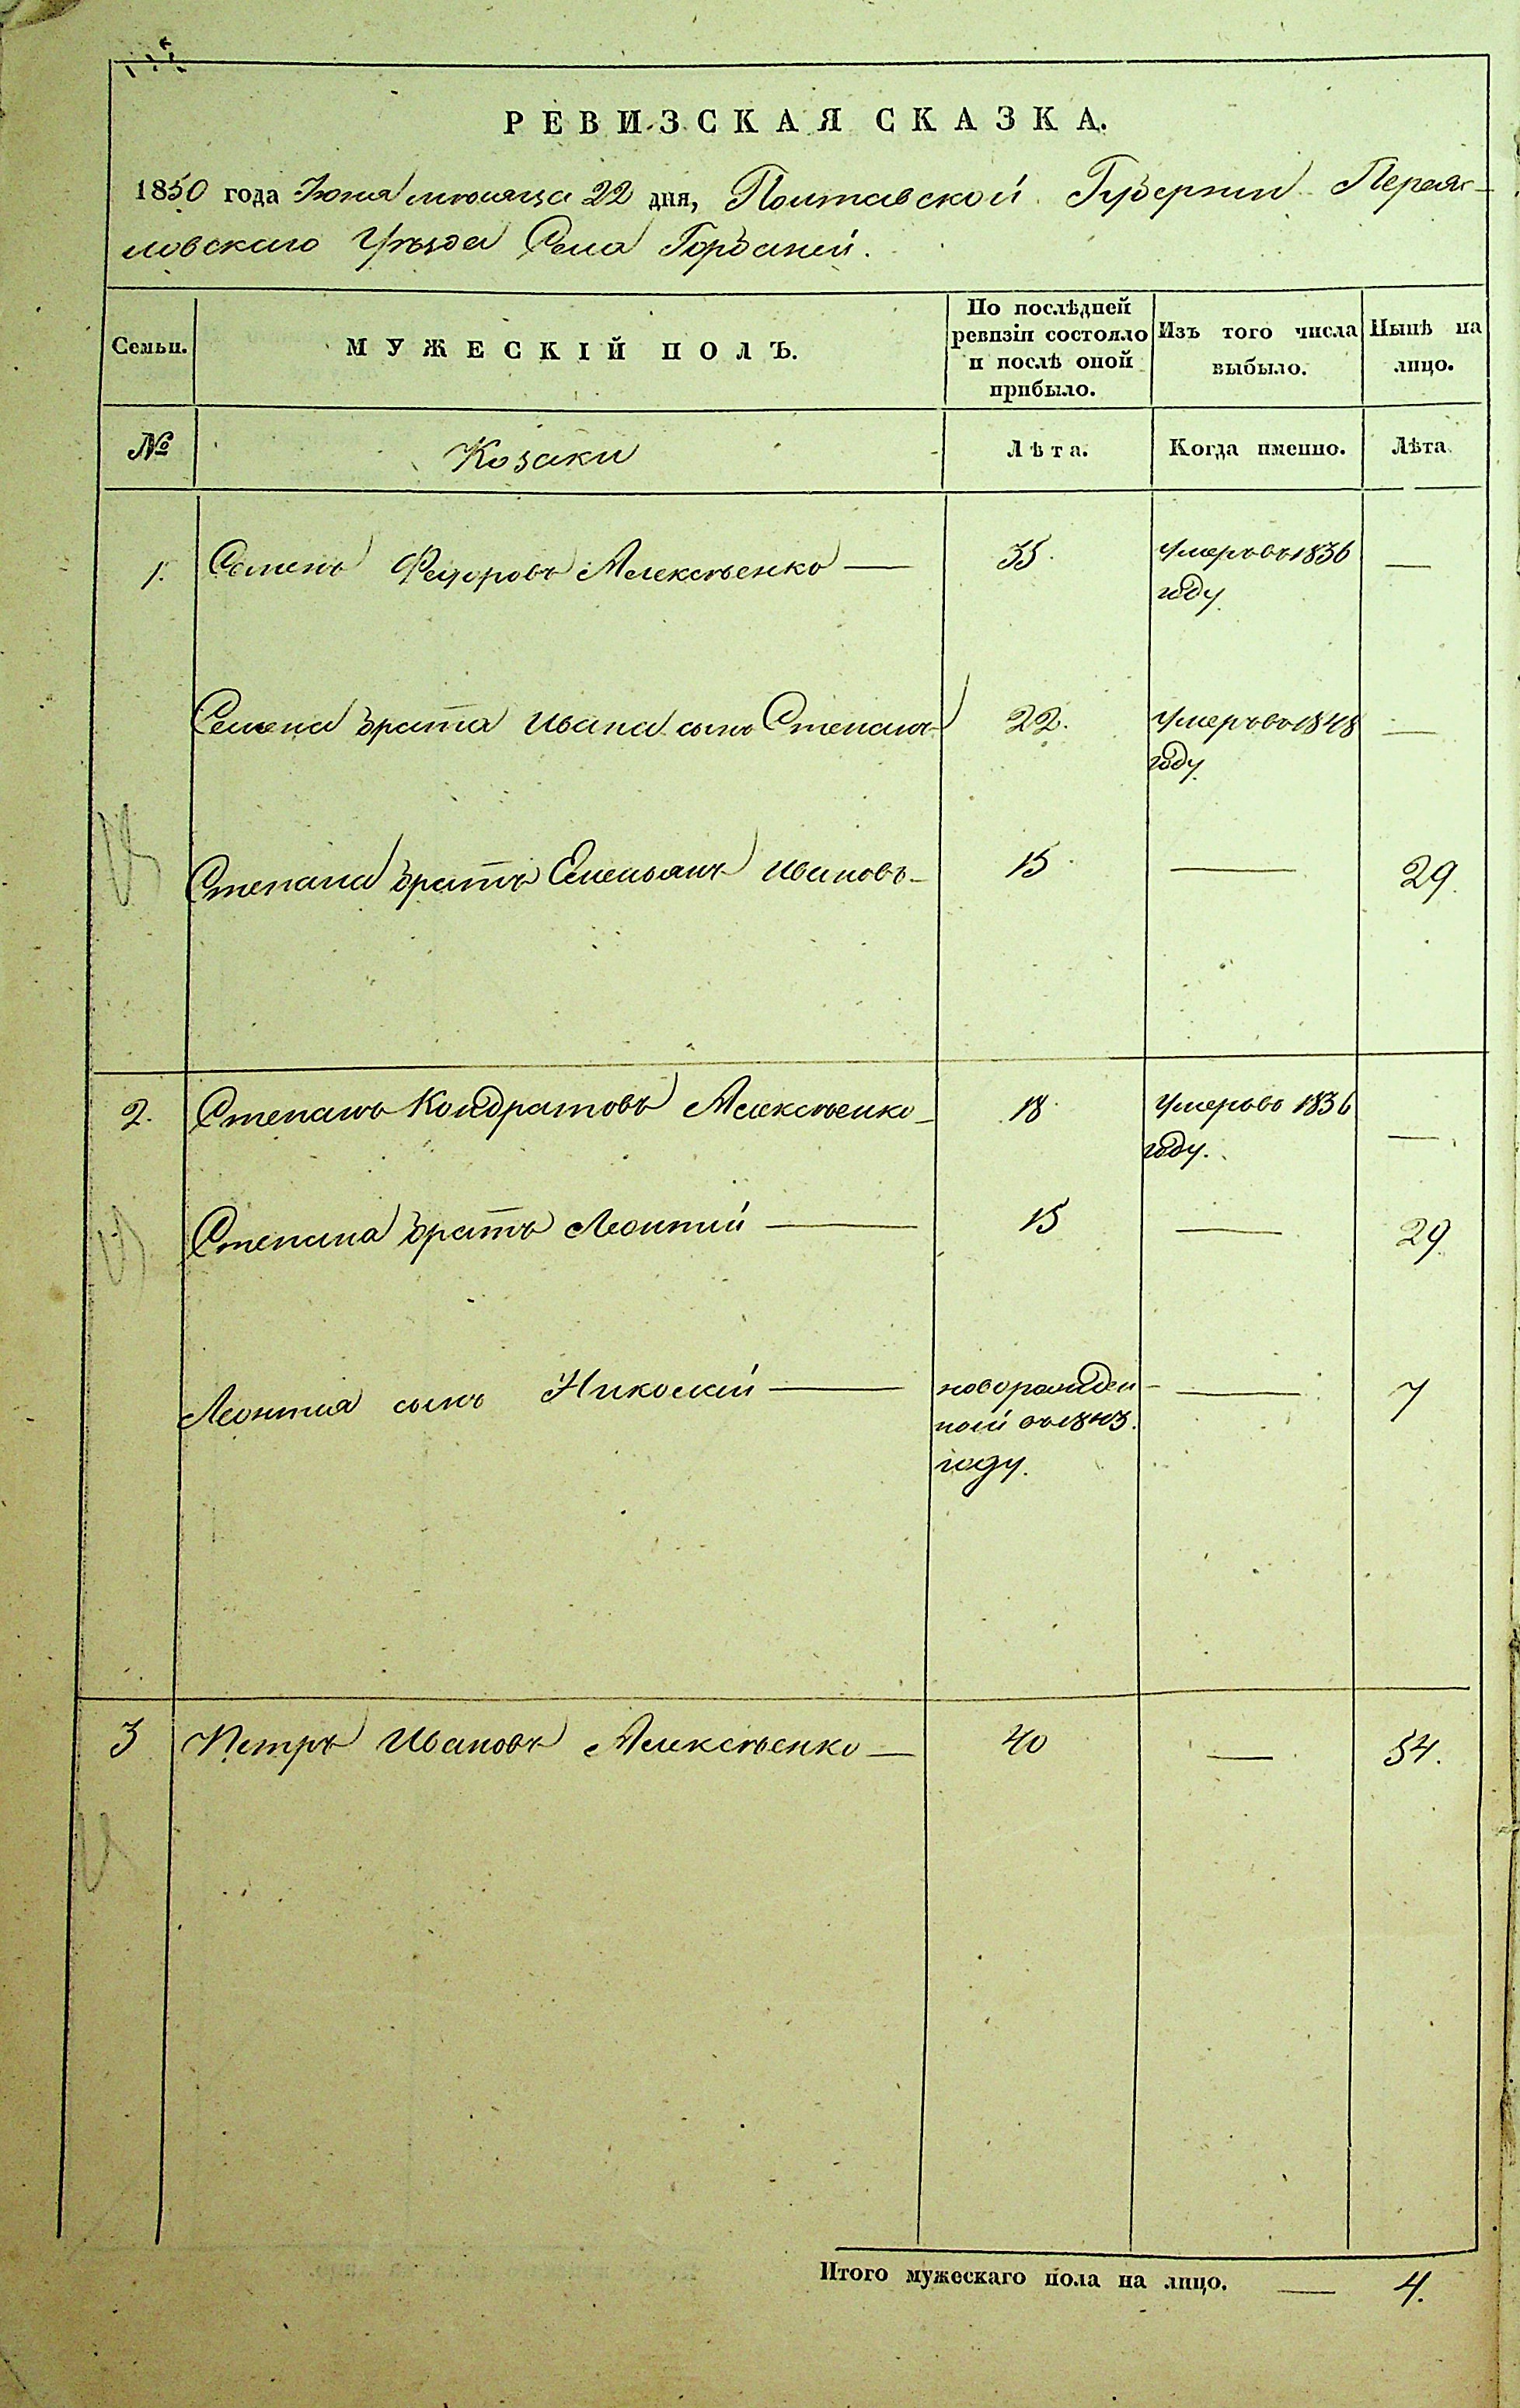 РЕВИЗСКАЯ СКАЗКА.
1850 года Іюня мѣсяца 22 дня, Полтавской Губерніи Переяс-
ловскаго Уѣзда Села Горбаней.
Семьи.
МУЖЕСКІЙ ПОЛЪ.
По послѣдней
ревизіи состояло
и послѣ оной
прибыло.
Изъ того числа
выбыло.
Нынѣ на
лицо.
№
Козаки
Лѣта.
Когда именно.
Лѣта.
1. Семенъ Федоровъ Алексѣенко — 35. Умеръ въ 1836 —
году.
Семена брата Ивана сынъ Степанъ 22. Умеръ въ 1848 —
году.
Степана братъ Емельянъ Ивановъ — 15 — 29.
2. Степанъ Кондратовъ Алексѣенко — 18 Умеръ въ 1836 —
году.
Степана братъ Леонтій — 15 — 29.
Леонтія сынъ Николай — новорожден- — 7
ный въ 1843.
году.
3 Петръ Ивановъ Алексѣенко — 40 — 54.
Итого мужескаго пола на лицо. — 4.